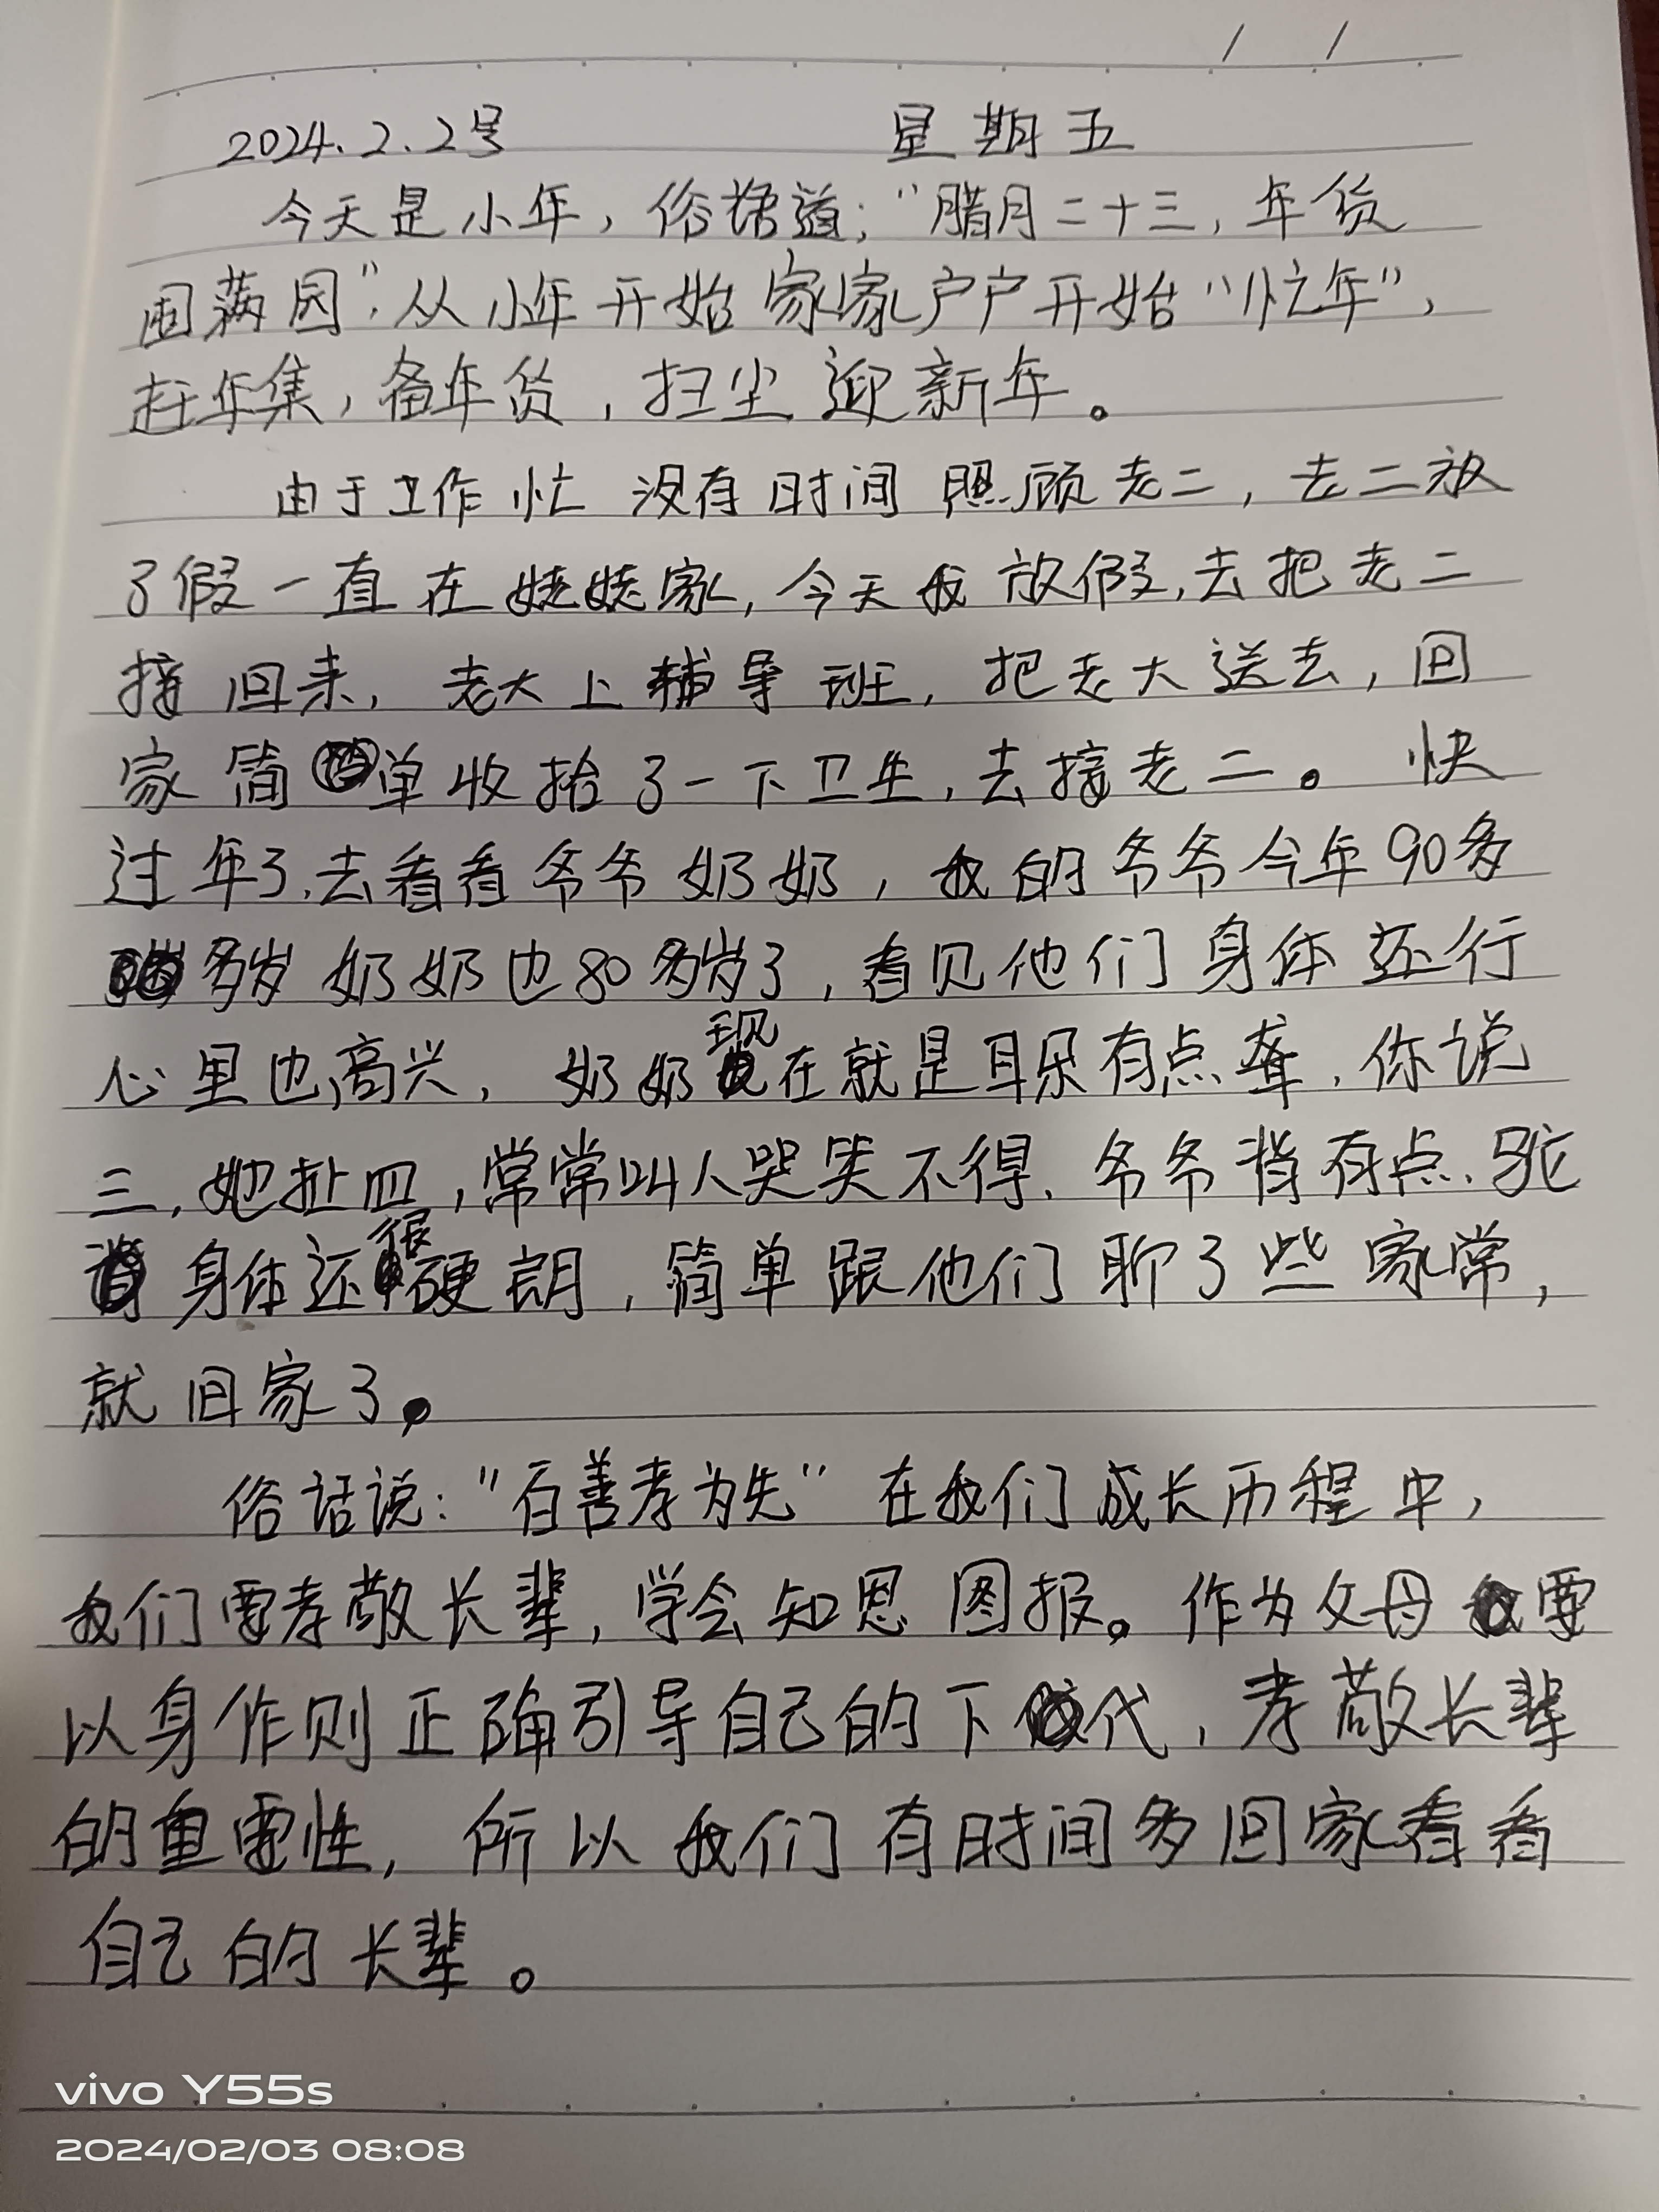 / /
2024.2.2号 星期五
今天是小年，俗语道；“腊月二十三，年货
囤满园”.从小年开始家家户户开始“忙年”，
赶年集，备年货，扫尘迎新年。
由于工作忙 没有时间 照顾老二，老二放
了假一直在姥姥家，今天我放假，去把老二
接回来，老大上辅导班，把老大送去，回
家简单收拾了一下卫生，去接老二。快
过年了，去看看爷爷奶奶，我的爷爷今年90多
多岁 奶奶也80多岁了，看见他们身体还行
心里也高兴，奶奶现在就是耳朵有点聋，你说
三，她扯四，常常叫人哭笑不得，爷爷背有点驼
身体还很硬朗，简单跟他们聊了些家常，
就回家了。
俗话说：“百善孝为先”在我们成长历程中，
我们要孝敬长辈，学会知恩图报。作为父母要
以身作则正确引导自己的下代，孝敬长辈
的重要性，所以我们有时间多回家看看
自己的长辈。
vivo Y55s
2024/02/03 08:08